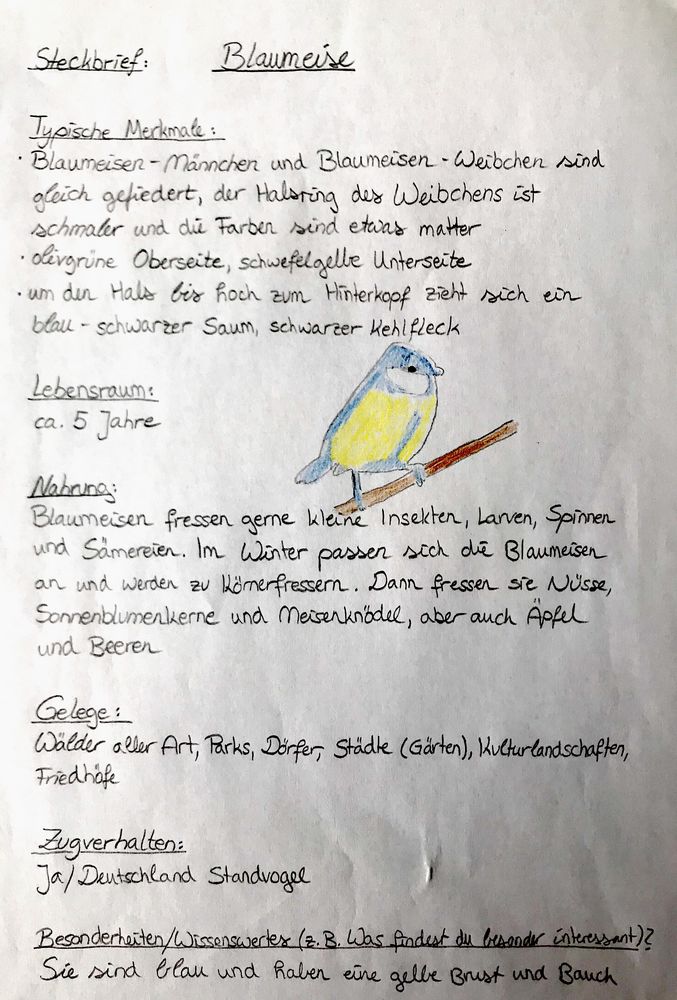 Steckbrief: Blaumeise
Typische Merkmale:
· Blaumeisen-Männchen und Blaumeisen-Weibchen sind
gleich gefiedert, der Halsring des Weibchens ist
schmaler und die Farben sind etwas matter
· olivgrüne Oberseite, schwefelgelbe Unterseite
· um den Hals bis hoch zum Hinterkopf zieht sich ein
blau-schwarzer Saum, schwarzer Kehlfleck
Lebensraum:
ca. 5 Jahre
Nahrung:
Blaumeisen fressen gerne kleine Insekten, Larven, Spinnen
und Sämereien. Im Winter passen sich die Blaumeisen
an und werden zu Körnerfressern. Dann fressen sie Nüsse,
Sonnenblumenkerne und Meisenknödel, aber auch Äpfel
und Beeren
Gelege:
Wälder aller Art, Parks, Dörfer, Städte (Gärten), Kulturlandschaften,
Friedhöfe
Zugverhalten:
Ja/Deutschland Standvogel
Besonderheiten/Wissenswertes (z.B. Was findest du besonder interessant)?
Sie sind blau und haben eine gelbe Brust und Bauch